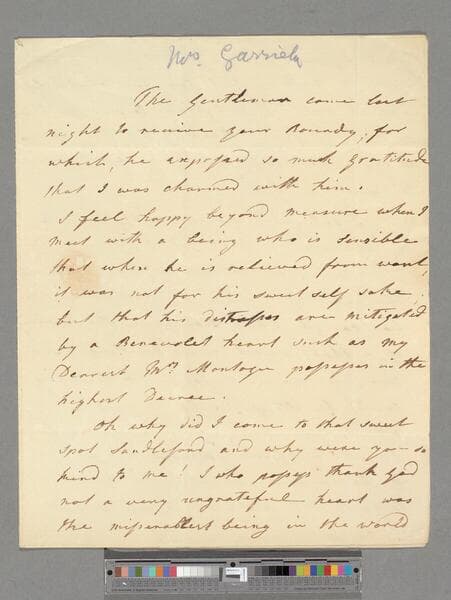 Mrs. Garrick
The Gentleman came last
night to receive your Bounty, for
which, he expressed so much gratitude
that I was charmed with him.
I feel happy beyond measure when I
meet with a being who is sensible
that when he is relieved from want,
it was not for his sweet self sake,
but that his distresses are mitigated
by a Benevolet heart such as my
Dearest Mrs. Montagu possesses in the
highest Decree.
Oh why did I come to that sweet
spot Sandleford and why were you so
kind to me! I who possess thank god
not a very ungrateful heart was
the miserablest being in the world